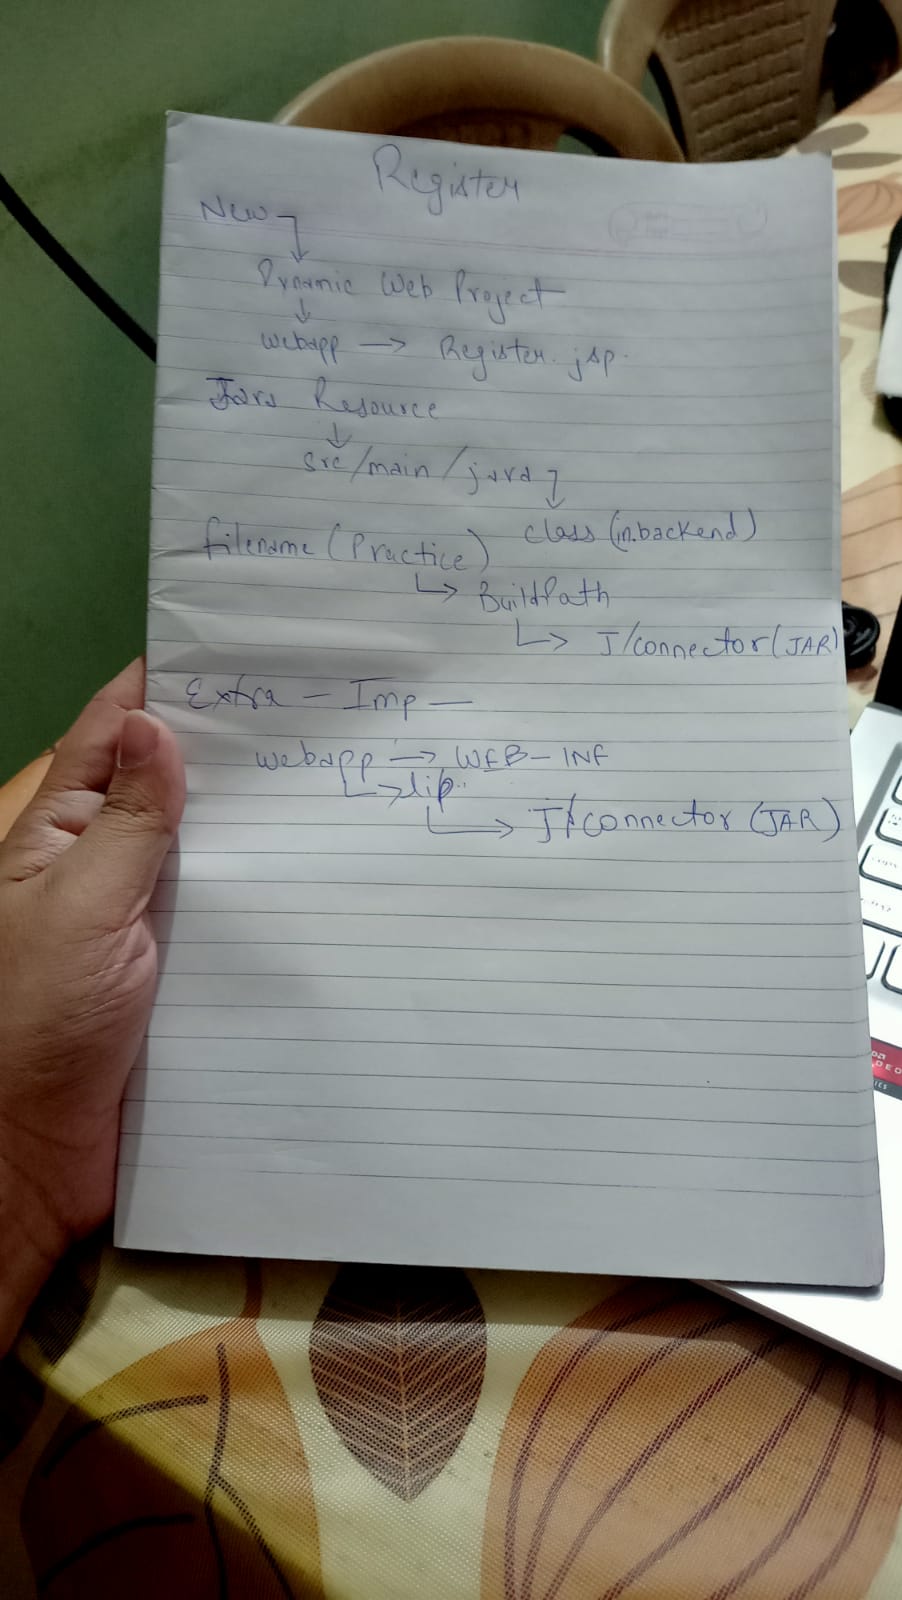 Register
New
Dynamic Web Project
webapp → Register.jsp.
Java Resource
↓
src/main/java
class (in.backend)
filename (Practice)
↳ BuildPath
↳ J/connector (JAR)
Extra - Imp -
webapp → WEB-INF
↳ lib
↳ J/connector (JAR)